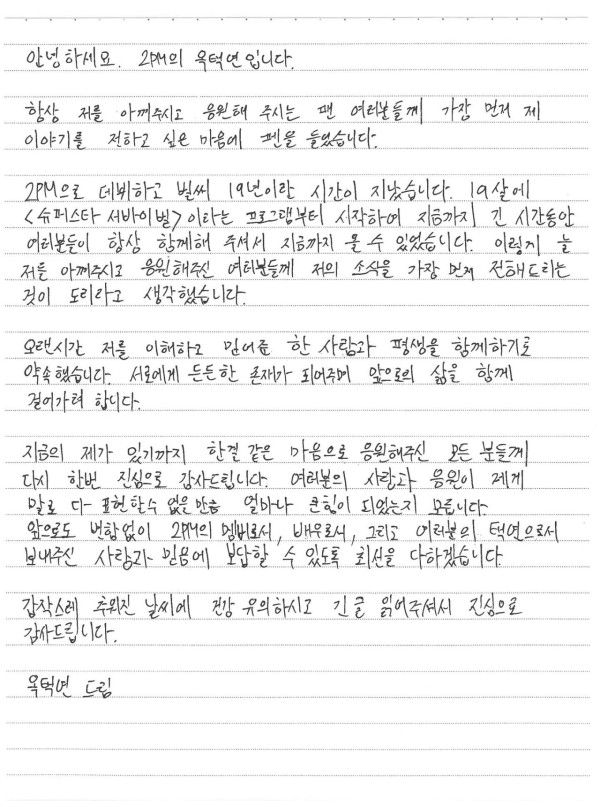 안녕하세요. 2PM의 옥택연입니다.
항상 저를 아껴주시고 응원해 주시는 팬 여러분들께 가장 먼저 제
이야기를 전하고 싶은 마음에 펜을 들었습니다.
2PM으로 데뷔하고 벌써 19년이란 시간이 지났습니다. 19살에
<슈퍼스타 서바이벌>이라는 프로그램부터 시작하여 지금까지 긴 시간동안
여러분들이 항상 함께해 주셔서 지금까지 올 수 있었습니다. 이렇게 늘
저를 아껴주시고 응원해주신 여러분들께 저의 소식을 가장 먼저 전해드리는
것이 도리라고 생각했습니다.
오랜시간 저를 이해하고 믿어준 한 사람과 평생을 함께하기로
약속했습니다. 서로에게 든든한 존재가 되어주며 앞으로의 삶을 함께
걸어가려 합니다.
지금의 제가 있기까지 한결 같은 마음으로 응원해주신 모든 분들께
다시 한번 진심으로 감사드립니다. 여러분의 사랑과 응원이 제게
말로 다 표현할수 없을만큼 얼마나 큰힘이 되었는지 모릅니다.
앞으로도 변함없이 2PM의 멤버로서, 배우로서, 그리고 여러분의 택연으로서
보내주신 사랑과 믿음에 보답할 수 있도록 최선을 다하겠습니다.
갑작스레 추워진 날씨에 건강 유의하시고 긴 글 읽어주셔서 진심으로
감사드립니다.
옥택연 드림